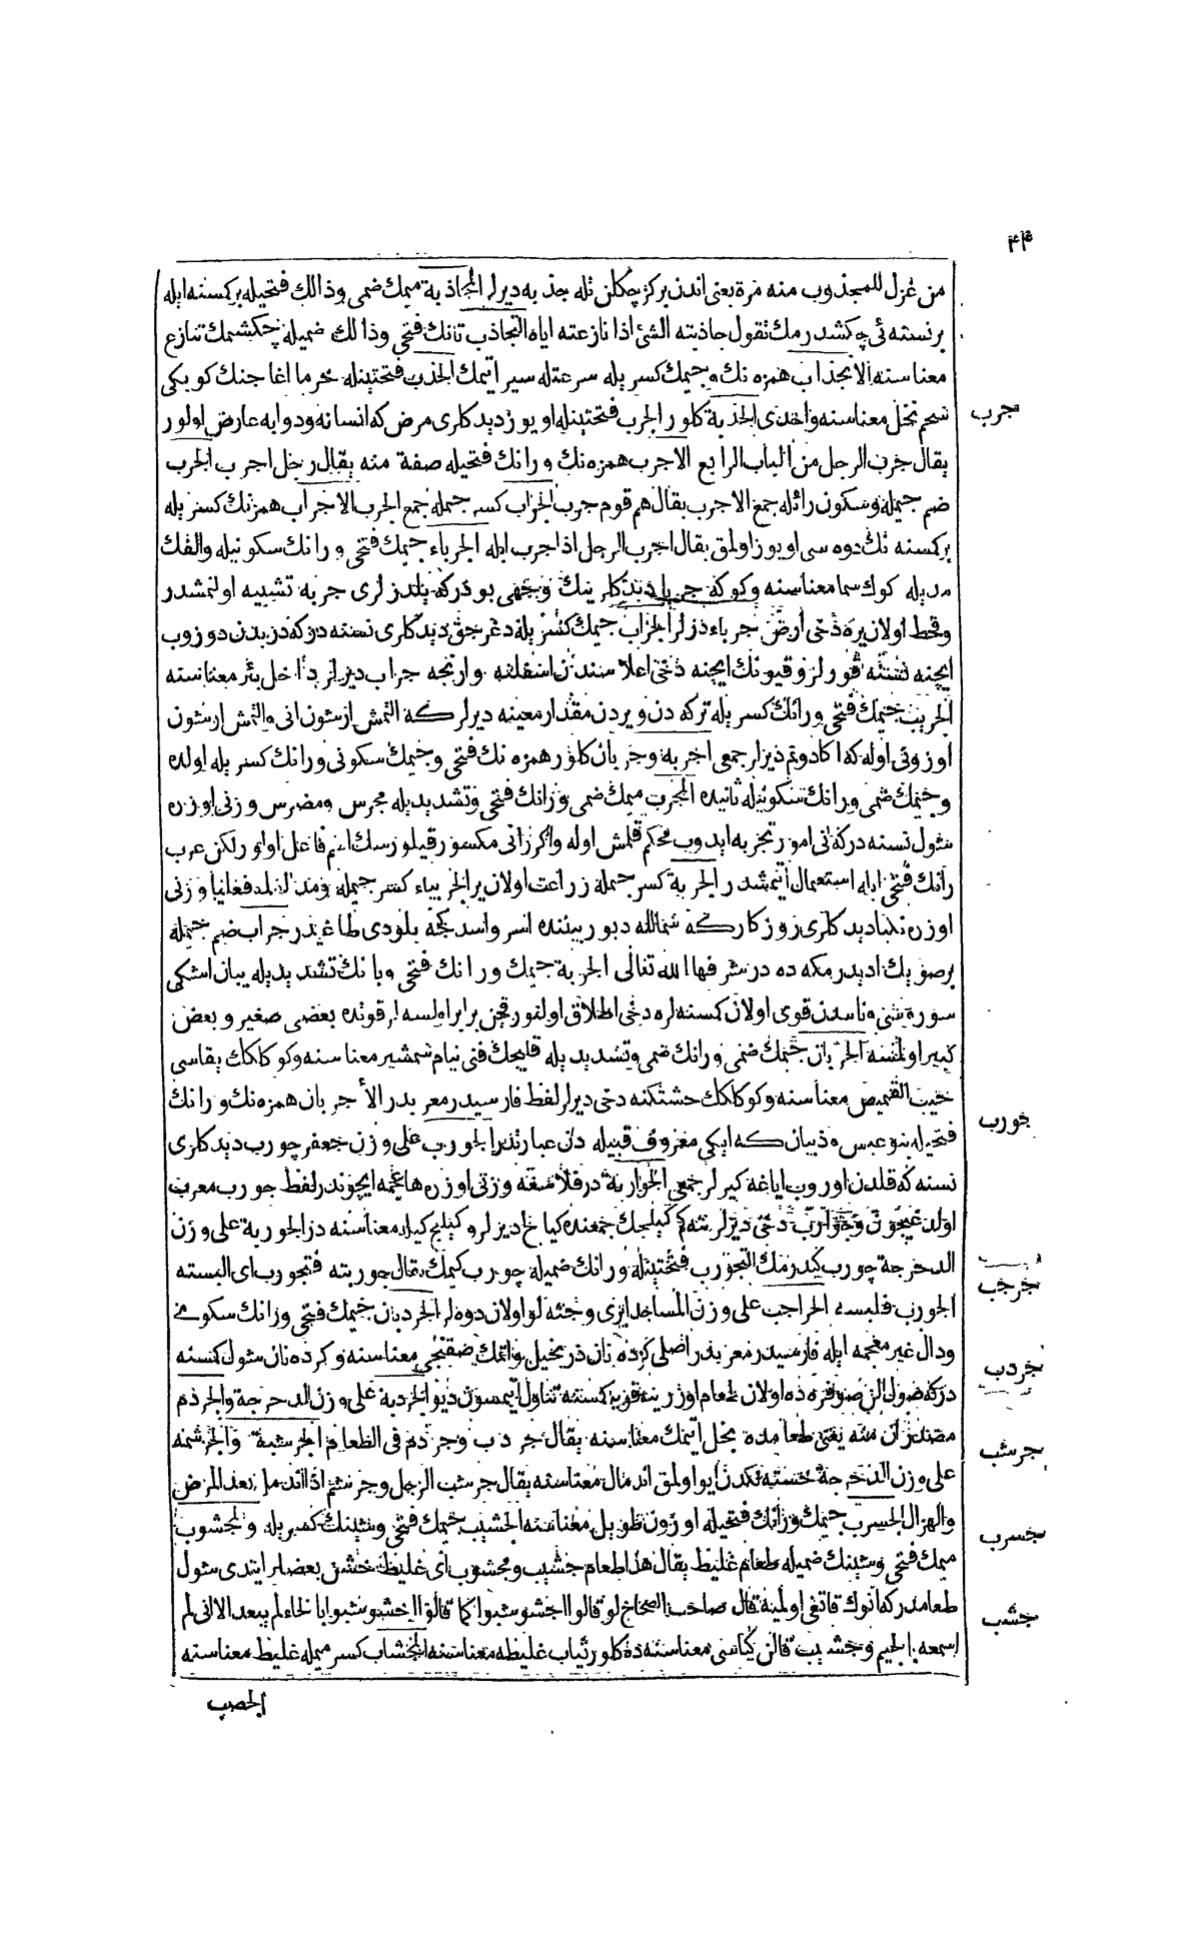 ٤٣
من غزل للمجذوب منه مرة يعنى اندن بر كز چكلن تله جذبه ديرلر المجاذبة ميمك ضمى وذالك فتحيله بر كسنه ايله
بر نسته ئى چكشدرمك تقول جاذبته الشئ اذا نازعته اياه التجاذب تانك فتحى وذالك ضميله چكشمك تنازع
معناسنه الانجذاب همزه نك وجيمك كسريله سرعتله سير اتيمك الجذب فتحتينله خرما اغاجنك كوبكى
شحم نخل معناسنه واحدى الجذبة كلور الجرب فتحتينله اويوز ديدكلرى مرض كه انسانه ودوابه عارض اولور
جرب
يقال جرب الرجل من الباب الرابع الاجرب همزه نك ورانك فتحيله صفة منه يقال رجل اجرب الجرب
ضم جيمله وسكون رائله جمع الاجرب يقال هم قوم جرب الجراب كسر جيمله جمع الجرب الاجراب همزنك كسريله
بر كسنه نك دوه سى اويوز اولمق يقال اجرب الرجل اذا جرب ابله الجرباء جيمك فتحى ورانك سكونيله والفك
مديله كوك سما معناسنه وكوكه جربا ديدكلرينك وجهى بودركه يلدزلرى جربه تشبيه اولنمشدر
وقحط اولان يره دخى ارض جرباء ديرلر الجراب جيمك كسريله دغرجق ديدكلرى نسنه در كه دريدن دوزوب
ايچنه نسنه قورلر وقيونك ايچنه دخى اعلاسندن اسفلنه وارنجه جراب ديرلر داخل بئر معناسنه
الجريب جيمك فتحى ورانك كسريله تركه دن ويردن مقدار معينه ديرلر كه التمش ارشون انى والتمش ارشون
اوزونى اوله كه اكا دونم ديرلر جمعى اجربه وجربان كلور همزه نك فتحى وجيمك سكونى ورانك كسريله اولده
وجيمك ضمى ورانك سكونيله ثانيده المجرب ميمك ضمى ورانك فتحى وتشديديله مجرس ومضرس وزنى اوزره
شول نسنه در كه انى امور تجربه ايدوب محكم قلمش اوله واكر رانى مكسور قيلورسك اسم فاعل اولور لكن عرب
رانك فتحى ايله استعمال اتيمشدر الجربة كسر جيمله زراعت اولان ير الجربياء كسر جيمله ومد ايله فعليا وزنى
اوزره نكبا ديدكلرى روزكاركه شمالله دبور بيننده اسر واسدكجه بلودى طاغيدر جراب ضم جيمله
بر صويك اديدر مكه ده در شرفها الله تعالى الجربة جيمك ورانك فتحى وبانك تشديديله يبان اشكى
سوره سنى وناسدن قوى اولان كسنه لره دخى اطلاق اولنور قچن برابر اولسه لر قوتده بعضى صغير وبعض
كبير اولمسنه الجربان جيمك ضمى ورانك ضمى وتشديديله قليجك قنى نيام شمشير معناسنه وكوكلكك يقاسى
جيب القميص معناسنه وكوكلكك خشتكنه دخى ديرلر لفظ فارسيدر معربدر الأجربان همزه نك ورانك
فتحيله بنو عبس وذبيان كه ايكى معروف قبيله در ان عبارتدر الجورب على وزن جعفر چورب ديدكلرى
جورب
نسنه كه قلدن اوروب اياغه كيرلر جمعى الجواربة در فلاسفه وزنى اوزره ها عجمه ايچوندر لفظ جورب معرب
اولدغيچون وجوارب دخى ديرلر نته كم كيلجك جمعنده كيالج ديرلر وكيلج كيله معناسنه در الجوربة على وزن
الدحرجة چورب كيدرمك التجورب فتحتينله ورانك ضميله چورب كيمك يقال جوربته فتجورب اى البسته
الجورب فلبسه الجراجب على وزن المساجد ايرى وجثه لو اولان دوه لر الجردبان جيمك فتحى ورانك سكونى
جرجب
ودال غير معجمه ايله فارسيدر معربدر اصلى كرده بان در بخيل واتمك صقنجى معناسنه وكرده نان شول كسنه
در كه صول الن صوفره ده اولان طعام اوزرينه قويه كسنه تناول ايتمسون ديو الجردبة على وزن الدحرجة والجردم
جردب
مصدرلر ان منه يعنى طعامده بخل اتيمك معناسنه يقال جردب وجردم فى الطعام الجرشبة والجرشمه
على وزن الدحرجة خسته لكدن ايو اولمق اندمال معناسنه يقال جرشب الرجل وجرشم اذا اندمل بعد المرض
جرشب
والهزال الجسرب جيمك ورانك فتحيله اوزون طويل معناسنه الجشيب جيمك فتحى وشينك كسريله والمجشوب
جسرب
ميمك فتحى وشينك ضميله طعام غليظ يقال هذا طعام جشيب ومجشوب اى غليظ خشن بعضلر ايتدى شول
طعامدر كه انوك قاتغى اولميه قال صاحب الصحاح لو قالوا اجشوشبوا كما قالوا اخشوشبوا بالخاء لم يبعد الا انى لم
جشب
اسمعه بالجيم وجشيب قالن كتاسى معناسنه ده كلور ثياب غليظه معناسنه المجشاب كسر ميمله غليظ معناسنه
الجصب